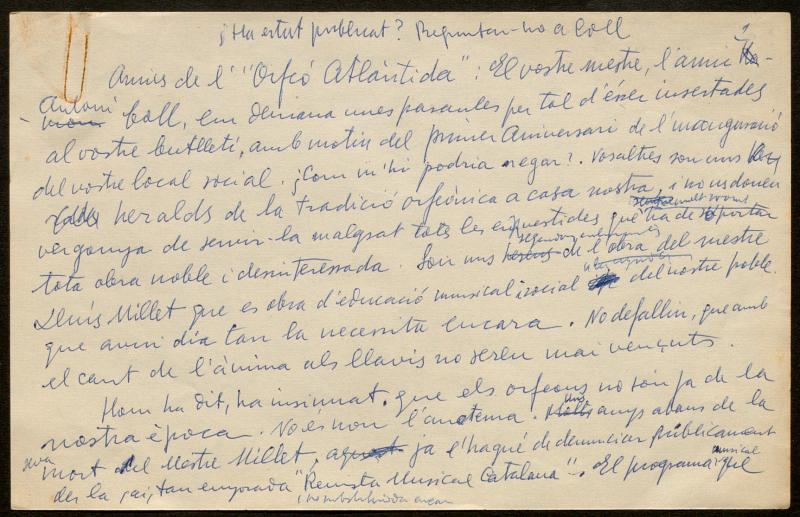 ¿Ha estat publicat? Preguntar-ho a Coll
1
Amics de l'"Orfeó Atlàntida": El vostre mestre, l'amic
Antoni Coll, em demana unes paraules per tal d'ésser insertades
al vostre butlletí, amb motiu del primer aniversari de l'inauguració
del vostre local social. ¿Com m'hi podria negar?. Vosaltres sou uns
heralds de la tradició orfeònica a casa nostra, i no us doneu
vergonya de servir-la malgrat totes les envestides que ha de soportar
tota obra noble i desinteressada. Sou uns de l'obra del mestre
Lluís Millet que es obra d'educació musical i social del nostre poble
que avui dia tan la necessita encara. No defalliu, que amb
el cant de l'ànima als llavis no sereu mai vençuts.
Hom ha dit, ha insinuat que els orfeons no són ja de la
nostra època. No és nou l'anatema. Uns anys abans de la
seva mort el Mestre Millet, ja l'hagué de denunciar públicament
des la tan enyorada "Revista Musical Catalana". El programa musical que